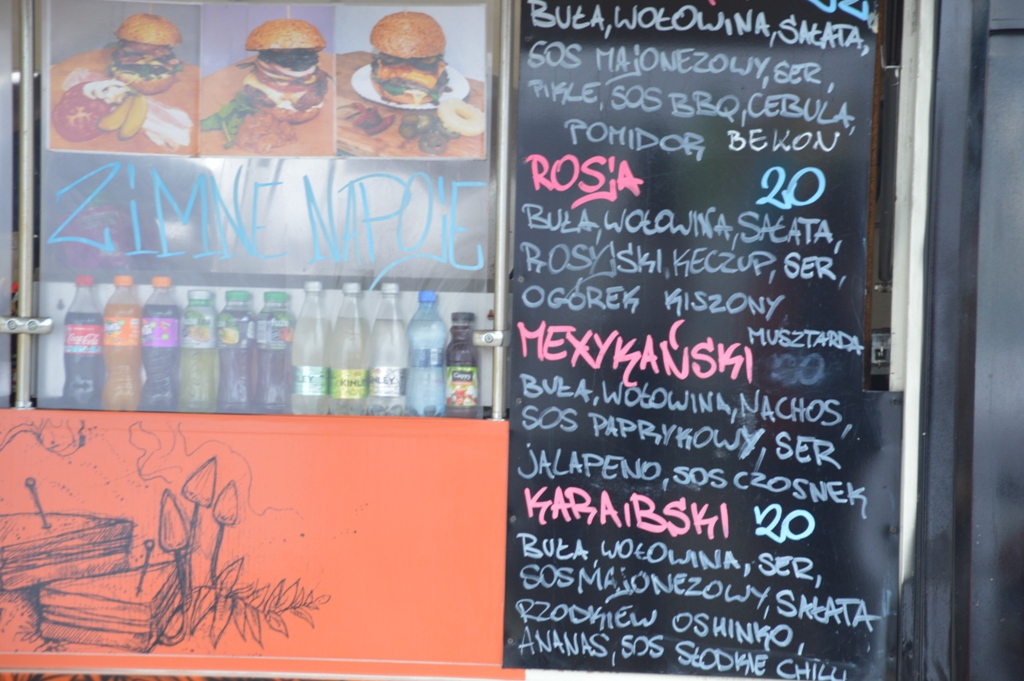 ZIMNE NAPOJE
Coca-Cola
KINLEY
Cappy
BUŁA, WOŁOWINA, SAŁATA,
SOS MAJONEZOWY, SER,
PIKLE, SOS BBQ, CEBULA,
POMIDOR BEKON
ROSJA 20
BUŁA, WOŁOWINA, SAŁATA,
ROSYJSKI KECZUP, SER,
OGÓREK KISZONY
MUSZTARDA
MEXYKAŃSKI 20
BUŁA, WOŁOWINA, NACHOS,
SOS PAPRYKOWY, SER
JALAPENO, SOS CZOSNEK
KARAIBSKI 20
BUŁA WOŁOWINA, SER,
SOS MAJONEZOWY, SAŁATA
RZODKIEW OSHINKO,
ANANAS, SOS SŁODKIE CHILLI